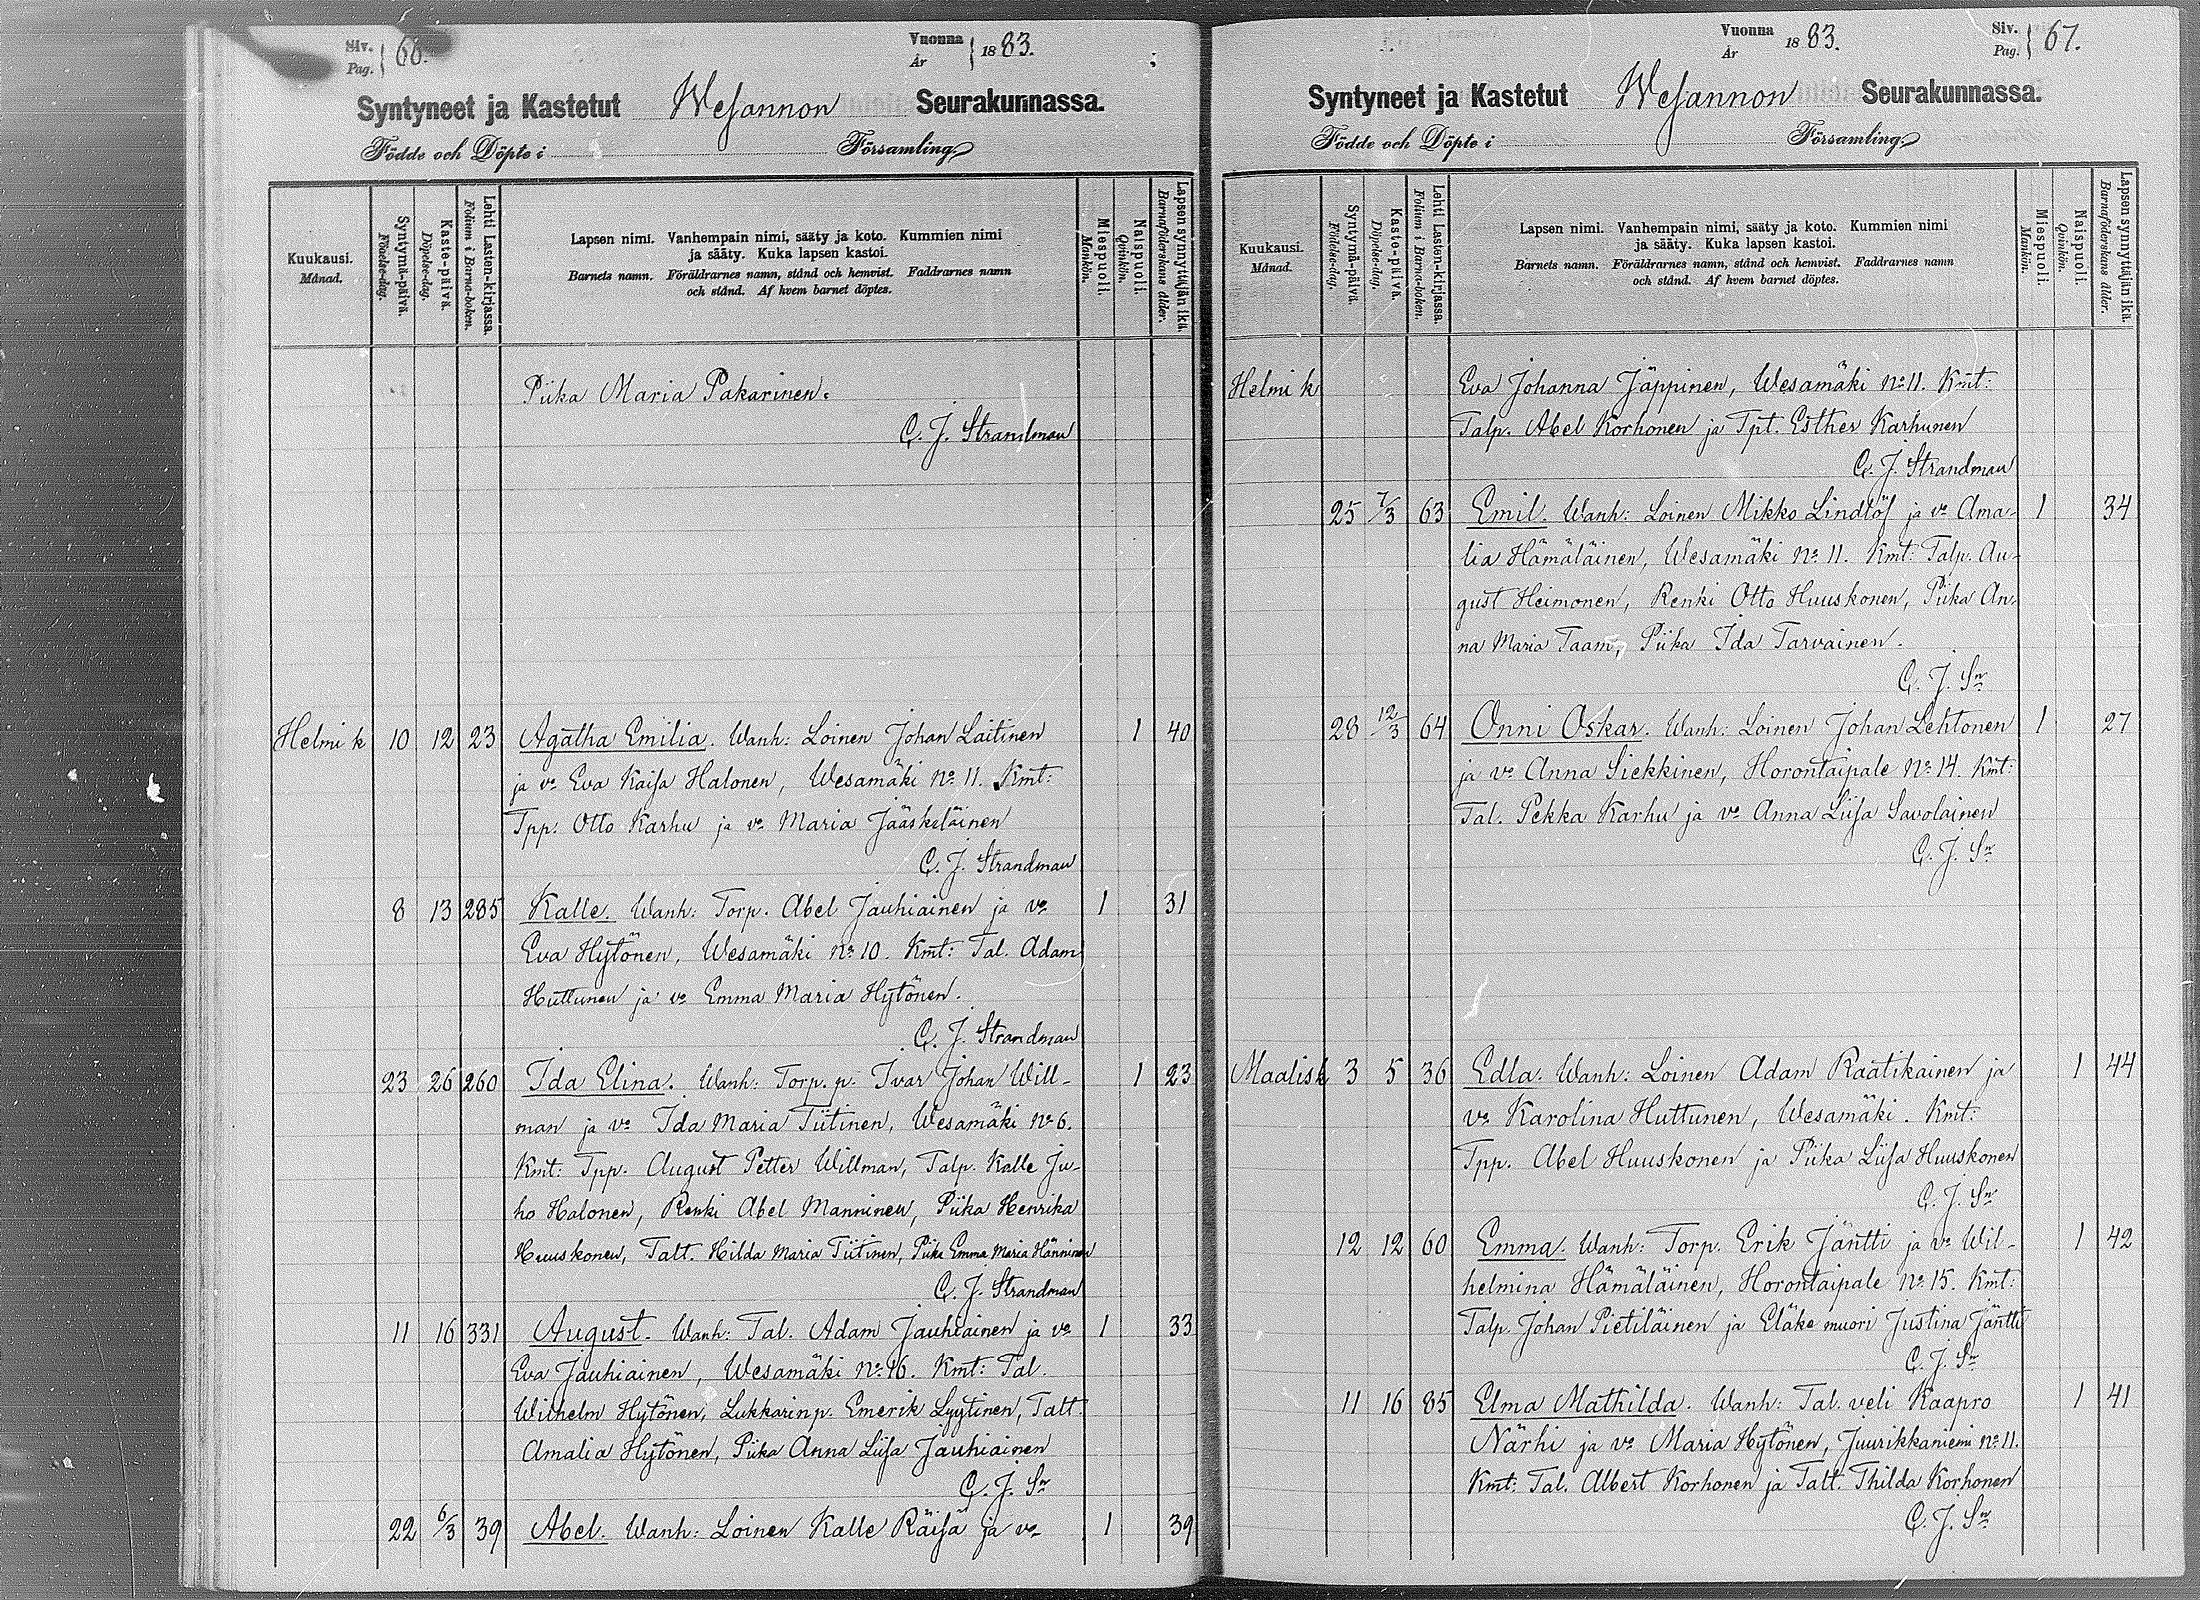 Siv. Pag. 66.
Vuonna År 1883.
Syntyneet ja Kastetut Wesannon Seurakunnassa.
Födde och Döpte i Församling
Kuukausi. Månad.
Syntymä-päivä. Födelse-dag.
Kaste-päivä. Döpelse-dag.
Lehti Lasten-kirjassa. Folium i Barna-boken.
Lapsen nimi. Vanhempain nimi, sääty ja koto. Kummien nimi
ja sääty. Kuka lapsen kastoi.
Barnets namn. Föräldrarnes namn, stånd och hemvist. Faddrarnes namn
och stånd. Af hvem barnet döptes.
Miespuoli. Mankön.
Naispuoli. Qvinkön.
Lapsen synnyttäjän ikä. Barnaföderskans ålder.
Piika Maria Pakarinen.
C. J. Strandman
Helmi k 10 12 23 Agatha Emilia. Wanh: Loinen Johan Laitinen 1 40
ja vo Eva Kaisa Halonen, Wesamäki No 11. Kmt:
Tpp: Otto Karhu ja vo Maria Jääskeläinen
C. J. Strandman
8 13 285 Kalle. Wanh: Torp. Abel Jauhiainen ja vo 1 31
Eva Hytönen, Wesamäki No 10. Kmt: Tal. Adam
Huttunen ja vo Emma Maria Hytönen.
C. J. Strandman
23 26 260 Ida Elina. Wanh: Torp. p. Ivar Johan Will- 1 23
man ja vo Ida Maria Tiitinen, Wesamäki No 6.
Kmt: Tpp. August Petter Willman, Talp. Kalle Ju-
ho Halonen, Renki Abel Manninen, Piika Henrika
Huuskonen, Talt. Hilda Maria Tiitinen, Piika Emma Maria Hänninen
C. J. Strandman
11 16 331 August. Wanh: Tal. Adam Jauhiainen ja vo 1 33
Eva Jauhiainen, Wesamäki No 16. Kmt: Tal.
Wilhelm Hytönen, Lukkarin p. Emerik Lyytinen, Talt.
Amalia Hytönen, Piika Anna Liisa Jauhiainen
C. J. Sn
22 6/3 39 Abel. Wanh: Loinen Kalle Räisä ja vo 1 39
Vuonna År 1883.
Siv. Pag. 67.
Syntyneet ja Kastetut Wesannon Seurakunnassa.
Födde och Döpte i Församling
Kuukausi. Månad.
Syntymä-päivä. Födelse-dag.
Kaste-päivä. Döpelse-dag.
Lehti Lasten-kirjassa. Folium i Barna-boken.
Lapsen nimi. Vanhempain nimi, sääty ja koto. Kummien nimi
ja sääty. Kuka lapsen kastoi.
Barnets namn. Föräldrarnes namn, stånd och hemvist. Faddrarnes namn
och stånd. Af hvem barnet döptes.
Miespuoli. Mankön.
Naispuoli. Qvinkön.
Lapsen synnyttäjän ikä. Barnaföderskans ålder.
Helmi k Eva Johanna Jäppinen, Wesamäki No 11. Kmt:
Talp. Abel Korhonen ja Tpt. Esther Karhunen
C. J. Strandman
25 7/3 63 Emil. Wanh: Loinen Mikko Lindlöf ja vo Ama- 1 34
lia Hämäläinen, Wesamäki No 11. Kmt: Talp. Au-
gust Heimonen, Renki Otto Huuskonen, Piika An-
na Maria Taam, Piika Ida Tarvainen.
C. J. Sn
28 12/3 64 Onni Oskar. Wanh: Loinen Johan Lehtonen 1 27
ja vo Anna Siekkinen, Horontaipale No 14. Kmt:
Tal. Pekka Karhu ja vo Anna Liisa Savolainen
C. J. Sn
Maalisk 3 5 36 Edla. Wanh: Loinen Adam Raatikainen ja 1 44
vo Karolina Huttunen, Wesamäki. Kmt:
Tpp. Abel Huuskonen ja Piika Liisa Huuskonen
C. J. Sn
12 12 60 Emma. Wanh: Torp. Erik Jäntti ja vo Wil- 1 42
helmina Hämäläinen, Horontaipale No 15. Kmt:
Talp. Johan Pietiläinen ja Eläke muori Justina Jäntti
C. J. Sn
11 16 85 Elma Mathilda. Wanh: Tal. veli Kaapro 1 41
Närhi ja vo Maria Hytönen, Juurikkaniemi No 11.
Kmt: Tal. Albert Korhonen ja Talt. Thilda Korhonen
C. J. Sn